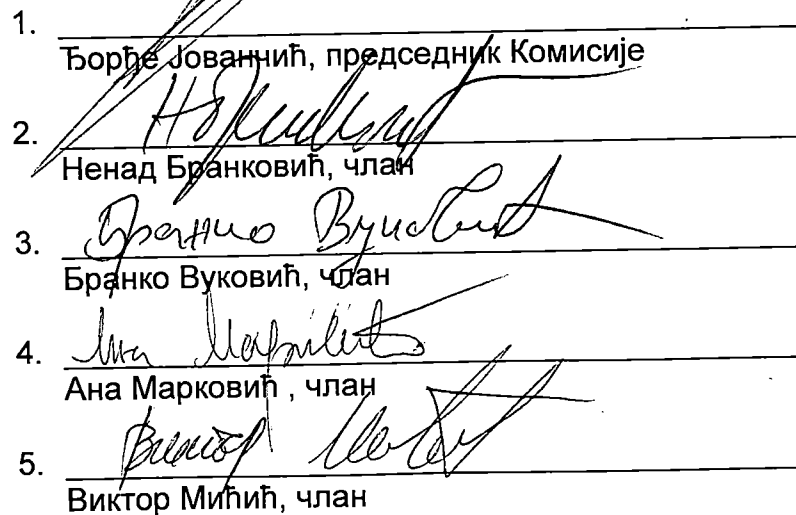 1.
Ђорђе Јованчић, председник Комисије
2.
Ненад Бранковић, члан
Бранко Вуковић
3.
Бранко Вуковић, члан
Ана Марковић
4.
Ана Марковић , члан
Виктор
5.
Виктор Мићић, члан